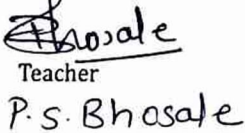 Bhosale
Teacher
P.S. Bhosale